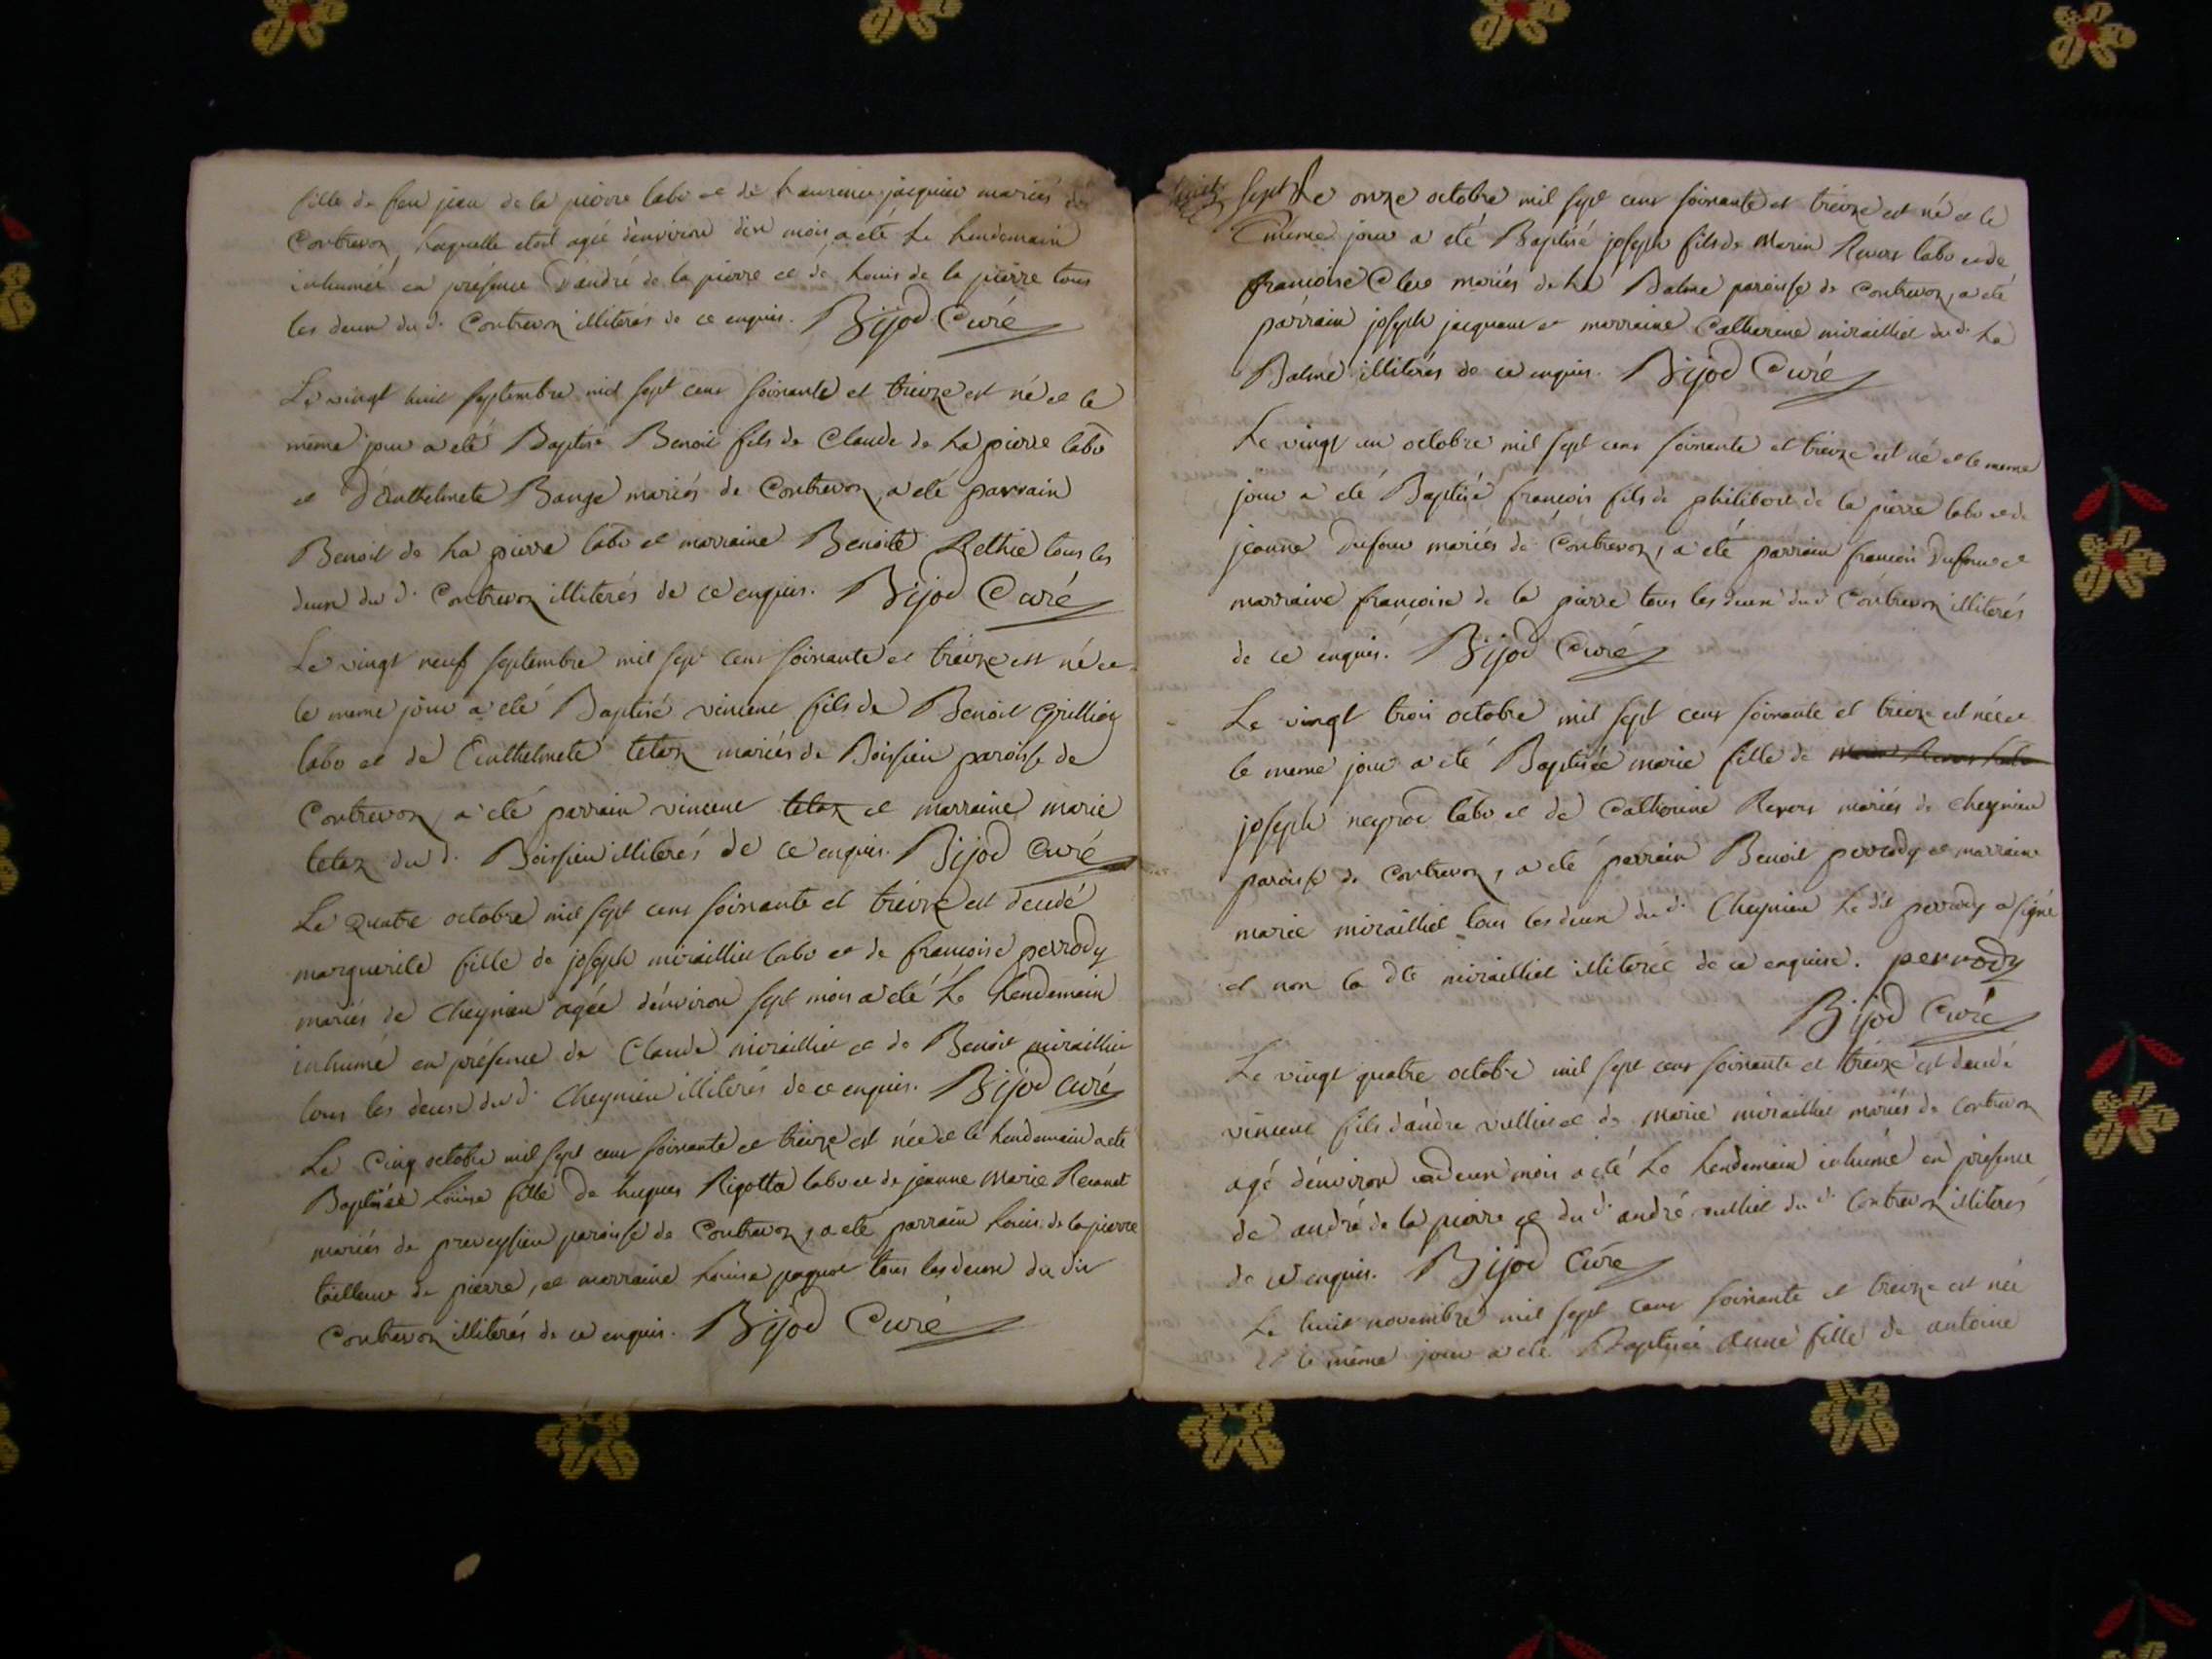 fille de feu jean de la pierre labr et de Laurence jacquier mariés de
Contrevoz, Laquelle etoit agée d'environ dix mois a eté Le Lendemain
inhumée en présence d'andré de la pierre et de Louis de la pierre tous
les deux du d. Contrevoz illiterés de ce enquis. Bijod Curé
Le vingt huit septembre mil sept cent soixante et treize est né et le
même jour a eté Baptisé Benoit fils de Claude de La pierre labr
et d'Anthelmete Bauge mariés de Contrevoz, a eté parrain
Benoit de La pierre labr et marraine Benoite Rethie tous les
deux du d. Contrevoz illiterés de ce enquis. Bijod Curé
Le vingt neuf septembre mil sept cent soixante et treize est né et
le meme jour a eté Baptisé vincent fils de Benoit Grillion
labr et de Enthelmete tetaz mariés de Boissieu paroisse de
Contrevoz, a eté parrain vincent tetaz et marraine marie
tetaz du d. Boissieu illiterés de ce enquis. Bijod Curé
Le quatre octobre mil sept cent soixante et treize est decedé
marguerite fille de joseph miraillet labr et de françoise perrody
mariés de Cheynieu agée d'environ sept mois a eté Le Lendemain
inhumé en présence de Claude miraillet et de Benoit miraillet
tous les deux du d. Cheynieu illiterés de ce enquis. Bijod Curé
Le Cinq octobre mil sept cent soixante et treize est née et le Lendemain a eté
Baptisée Louise fille de hugues Rigottaz labr et de jeanne Marie
mariés de preveysieu paroisse de Contrevoz, a eté parrain Louis de la pierre
tailleur de pierre, et marraine Louise paquet tous les deux du dit
Contrevoz illiterés de ce enquis. Bijod Curé
sept Le onze octobre mil sept cent soixante et treize est né et le
même jour a eté Baptisé joseph fils de Marin Revers labr et de
françoise mariés de La Balme paroisse de Contrevoz, a eté
parrain joseph jacquant et marraine Catherine miraillet du d. La
Balme illiterés de ce enquis. Bijod Curé
Le vingt un octobre mil sept cent soixante et treize est né et le meme
jour a eté Baptisé françois fils de philibert de la pierre labr et de
jeanne Dufour mariés de Contrevoz, a été parrain françois Dufour et
marraine françoise de la pierre tous les deux du d. Contrevoz illiterés
de ce enquis. Bijod Curé
Le vingt trois octobre mil sept cent soixante et treize est née et
le meme jour a eté Baptisée marie fille de
joseph neyrod labr et de Catherine Revers mariés de Cheynieu
paroisse de Contrevoz, a eté parrain Benoit perrody et marraine
marie miraillet tous les deux du d. Cheynieu Le dit perrody a signé
et non la dte miraillet illiterée de ce enquise. perrody
Bijod Curé
Le vingt quatre octobre mil sept cent soixante et treize est decedé
vincent fils d'andré vulliet et de marie miraillet mariés de Contrevoz
agé d'environ deux mois a eté Le Lendemain inhumé en présence
de andré de la pierre et du d. andré vulliet du d. Contrevoz illiterés
de ce enquis. Bijod Curé
Le huit novembre mil sept cent soixante et treize est née
et le même jour a eté Baptisée anne fille de antoine